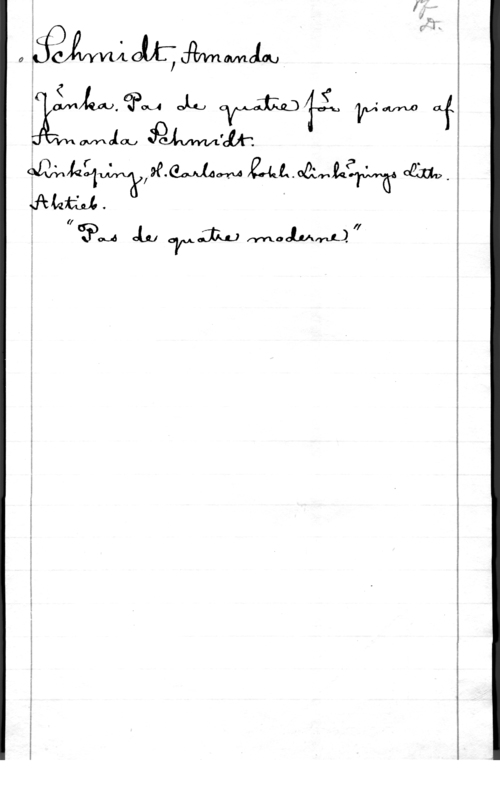 Schmidt, Amanda
Jänka. Pas de quatre för piano af
Amanda Schmidt.
Linköping, H. Carlsons bokh. Linköpings Lith.
Aktieb.
"Pas de quatre moderne."